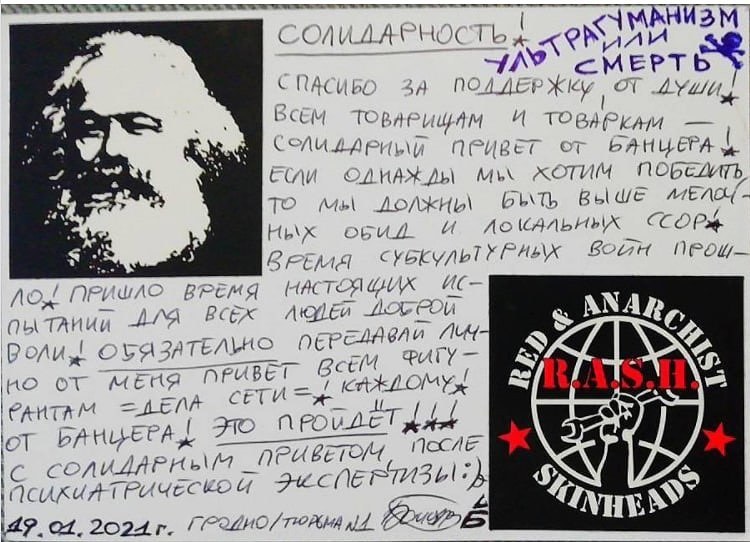 СОЛИДАРНОСТЬ!
УЛЬТРАГУМАНИЗМ
ИЛИ
СМЕРТЬ
СПАСИБО ЗА ПОДДЕРЖКУ ОТ ДУШИ!
ВСЕМ ТОВАРИЩАМ И ТОВАРКАМ —
СОЛИДАРНЫЙ ПРИВЕТ ОТ БАНЦЕРА!
ЕСЛИ ОДНАЖДЫ МЫ ХОТИМ ПОБЕДИТЬ,
ТО МЫ ДОЛЖНЫ БЫТЬ ВЫШЕ МЕЛОЧ-
НЫХ ОБИД И ЛОКАЛЬНЫХ ССОР!
ВРЕМЯ СУБКУЛЬТУРНЫХ ВОЙН ПРОШ-
ЛО! ПРИШЛО ВРЕМЯ НАСТОЯЩИХ ИС-
ПЫТАНИЙ ДЛЯ ВСЕХ ЛЮДЕЙ ДОБРОЙ
ВОЛИ! ОБЯЗАТЕЛЬНО ПЕРЕДАВАЙ ЛИЧ-
НО ОТ МЕНЯ ПРИВЕТ ВСЕМ ФИГУ-
РАНТАМ =ДЕЛА СЕТИ=! КАЖДОМУ!
ОТ БАНЦЕРА! ЭТО ПРОЙДЁТ!!!
С СОЛИДАРНЫМ ПРИВЕТОМ, ПОСЛЕ
ПСИХИАТРИЧЕСКОЙ ЭКСПЕРТИЗЫ:)
19.01.2021г. ГРОДНО/ТЮРЬМА №1
RED & ANARCHIST
R.A.S.H.
SKINHEADS